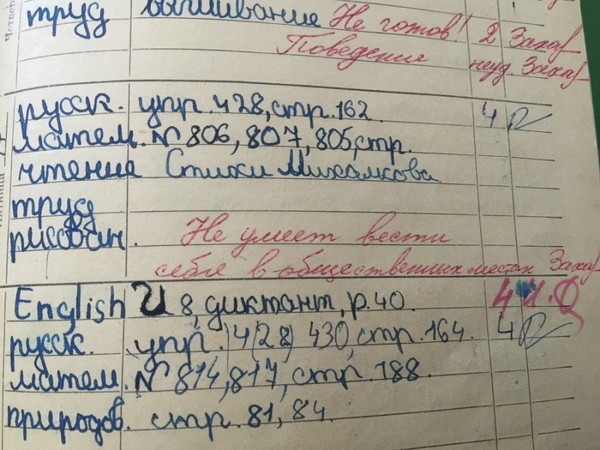 труд вышивание Не готов! 2 Захар
Поведение неуд. Захар
русск. упр. 428, стр. 162. 4
матем. № 806, 807, 805, стр.
чтение Стихи Михалкова
труд
рисован. Не умеет вести
себя в общественных местах Захар
English U 8, диктант, р. 40. 4
русск. упр. 428, 430, стр. 164. 4
матем. № 814, 817, стр. 188.
природов. стр. 81, 84.